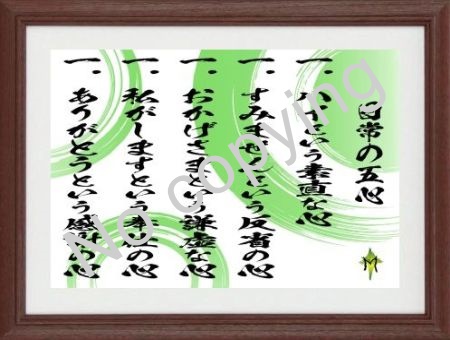 日常の五心
一.ハイという素直な心
一.すみませんという反省の心
一.おかげさまという謙虚な心
一.私がしますという奉仕の心
一.ありがとうという感謝の心
M
No copying